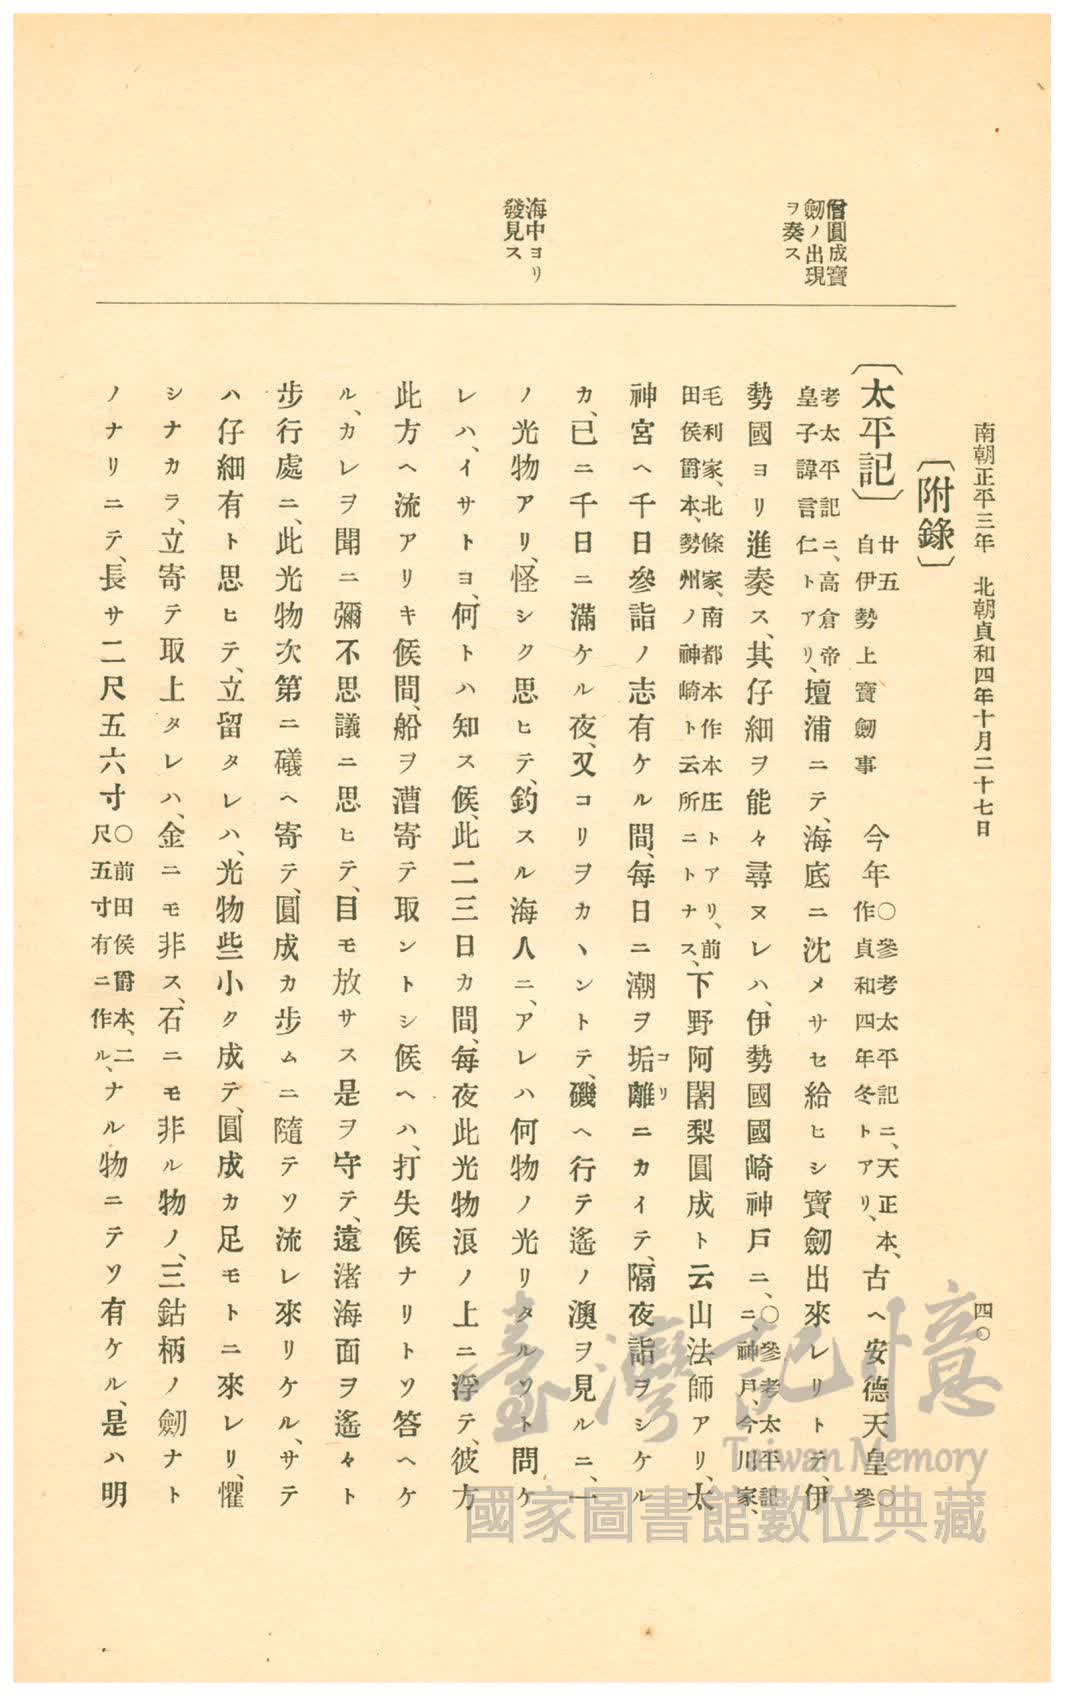 南朝正平三年　北朝貞和四年十月二十七日　四〇
僧圓成寶
劔ノ出現
ヲ奏ス
海中ヨリ
發見ス
〔附錄〕
〔太平記〕廿五 自伊勢上寶劔事　今年〇參考太平記ニ、天正本、作貞和四年冬トアリ、古ヘ安德天皇〇參
考太平記ニ、高倉帝皇子諱言仁トアリ、壇浦ニテ、海底ニ沈メサセ給ヒシ寶劔出來レリトテ、伊
勢國ヨリ進奏ス、其仔細ヲ能々尋ヌレハ、伊勢國國崎神戶ニ、〇參考太平記ニ、神戶、今川家、
毛利家、北條家、南都本作本庄トアリ、前田侯爵本、勢州ノ神崎ト云所ニトナス、下野阿闍梨圓成ト云山法師アリ、太
神宮ヘ千日參詣ノ志有ケル間、每日ニ潮ヲ垢離コリニカイテ、隔夜詣ヲシケル
カ、已ニ千日ニ滿ケル夜、又コリヲカヽントテ、磯ヘ行テ遙ノ澳ヲ見ルニ、一
ノ光物アリ、怪シク思ヒテ、釣スル海人ニ、アレハ何物ノ光リタルソト問ケ
レハ、イサトヨ、何トハ知ス候、此二三日カ間、每夜此光物浪ノ上ニ浮テ、彼方
此方ヘ流アリキ候間、船ヲ漕寄テ取ントシ候ヘハ、打失候ナリトソ答ヘケ
ル、カレヲ聞ニ彌不思議ニ思ヒテ、目モ放サス是ヲ守テ、遠渚海面ヲ遙々ト
步行處ニ、此光物次第ニ礒ヘ寄テ、圓成カ步ムニ隨テソ流レ來リケル、サテ
ハ仔細有ト思ヒテ、立留タレハ、光物些小ク成テ、圓成カ足モトニ來レリ、懼
シナカラ、立寄テ取上タレハ、金ニモ非ス、石ニモ非ル物ノ、三鈷柄ノ劔ナト
ノナリニテ、長サ二尺五六寸〇前田侯爵本、二尺五寸有ニ作ル、ナル物ニテソ有ケル、是ハ明
臺灣記憶
Taiwan Memory
國家圖書館數位典藏